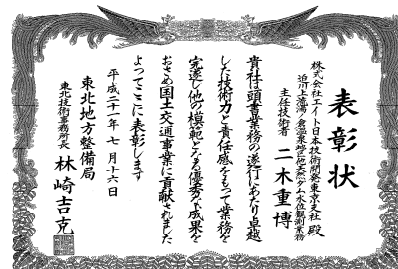 表彰状
株式会社エイト日本技術開発東京支社 殿
迫川上流湯ノ倉温泉地区他天然ダム水位観測業務
主任技術者 二木重博
貴社は頭書業務の遂行にあたり卓越
した技術力と責任感をもって業務を
完遂し他の模範となる優秀な成果を
おさめ国土交通事業に貢献されました
よってここに表彰します
平成二十一年 七月十六日
東北地方整備局
東北技術事務所長 林崎吉克